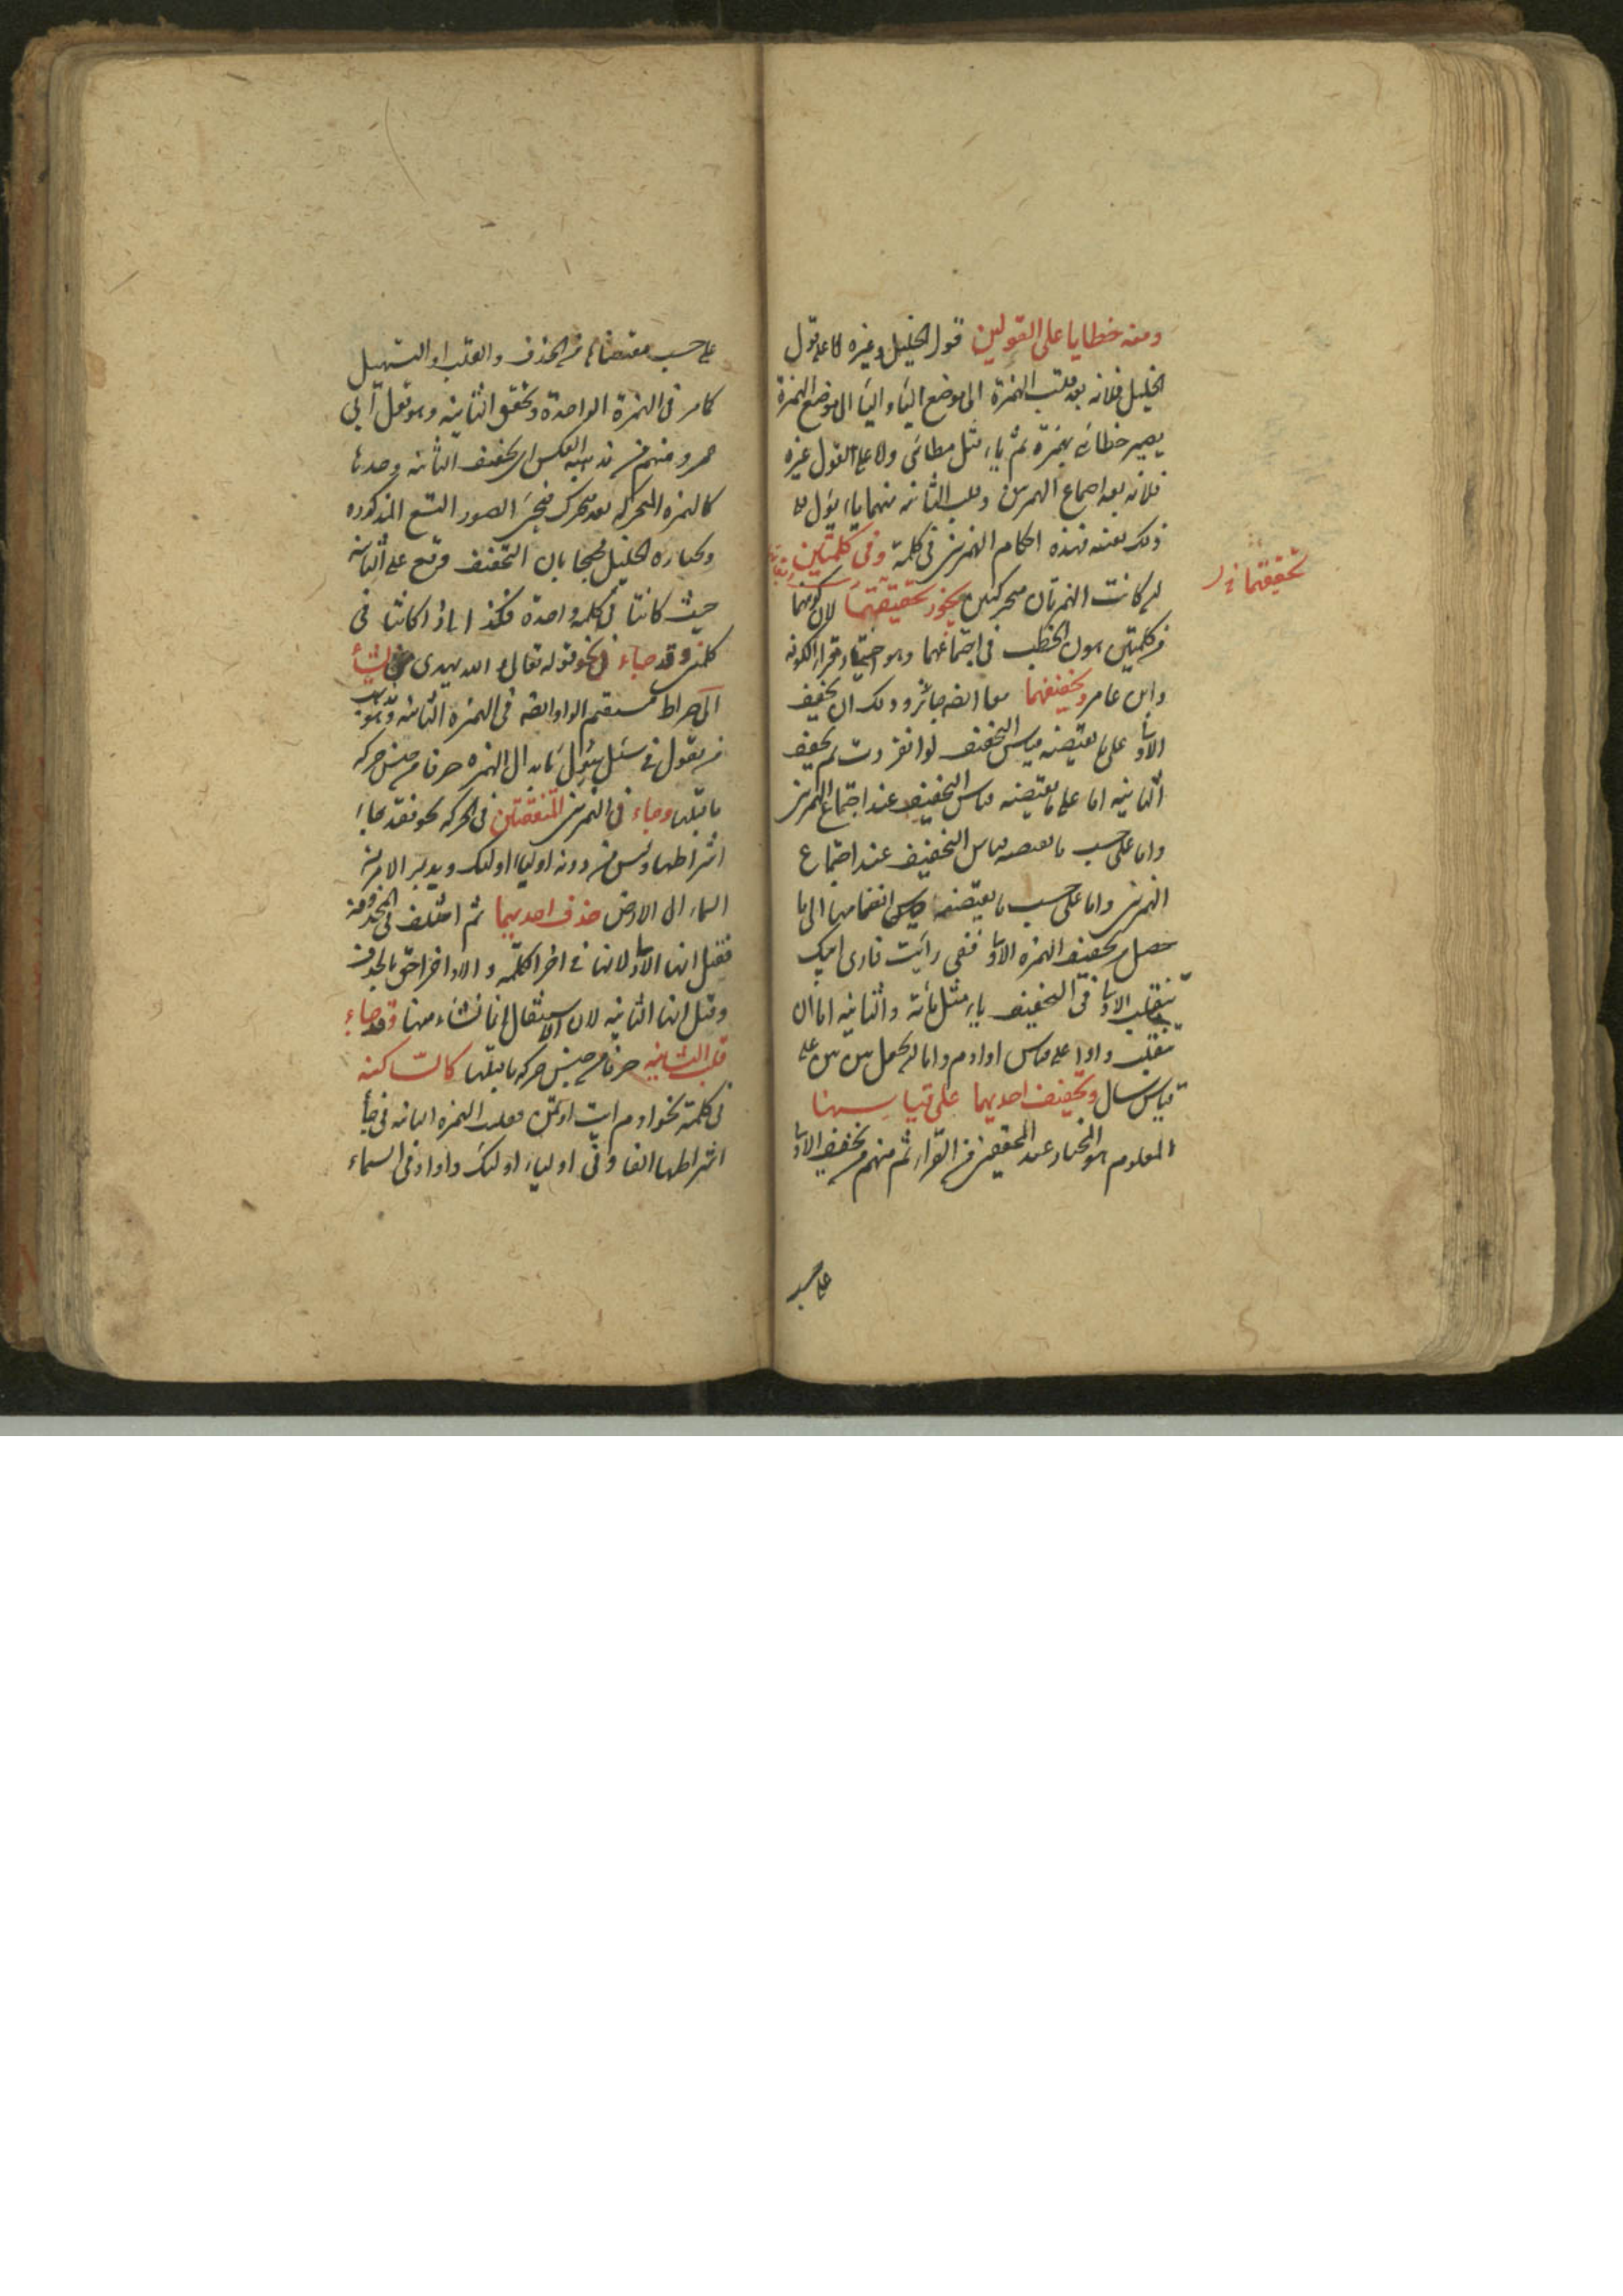 ومنه خطايا على القولين قول الخليل وغيره اما على قول
الخليل فلانه بعد قلب الهمزة الى موضع الياء والياء الى موضع الهمزة
يصير خطائي بهمزة ثم ياء مثل مطائي واما على القول غيره
فلانه بعد اجتماع الهمزتين وقلب الثانية منهما ياء يؤل الى
ذلك بعينه فهذه احكام الهمزتين في كلمة وفي كلمتين
ان كانت الهمزتان متحركتين يجوز تحقيقهما لان كونهما
تحقيقهما
في كلمتين يهون الخطب في اجتماعهما وهو اختيار قراء الكوفة
وابن عامر وتخفيفهما معا ايضا جائز وذلك ان تخفف
الاولى على ما يقتضيه قياس التخفيف لو انفردت ثم تخفف
الثانية اما على ما يقتضيه قياس التخفيف عند اجتماع الهمزتين
واما على حسب ما يقتضيه قياس التخفيف عند اجتماع
الهمزتين واما على حسب ما يقتضيه قياس انضمامها الى ما
حصل من تخفيف الهمزة الاولى ففي رايت قارئ ابيك
تنقلب الاولى في التخفيف ياء مثل مائة والثانية اما ان
تنقلب واوا على قياس اوادم واما ان تجعل بين بين على
قياس سال وتخفيف احديهما على قياسها
المعلوم هو المختار عند المحققين من القراء ثم منهم من يخفف الاولى
على حسب
على حسب مقتضاها من الحذف والقلب او التسهيل
كما مر في الهمزة الواحدة وتحقق الثانية وهو قول ابي
عمرو ومنهم من مذهبه العكس اي تخفيف الثانية وحدها
كالهمزة المتحركة بعد متحرك فيجئ الصور التسع المذكورة
واختاره الخليل محتجا بان التخفيف وقع على الثانية
حيث كانتا في كلمة واحدة فكذا اذا كانتا في
كلمتين وقد جاء في نحو قوله تعالى الله يهدي من يشأ
الى صراط مستقيم الواو ايضا في الهمزة الثانية وهو مذهب
من يقول في سئل سول بابدال الهمزة حرفا من جنس حركة
ما قبلها وجاء في الهمزتين المتفقتين في الحركة نحو فقد جاء
اشراطها وليس من دونه اولياء اولئك ويدبر الامر من
السماء الى الارض حذف احديهما ثم اختلف في المحذوفة
فقيل انها الاولى لانها في اخر الكلمة والاواخر احق بالحذف
وقيل انها الثانية لان الاستثقال انما نشاء منها وقد جاء
قلب الثانية حرفا من جنس حركة ما قبلها كالساكنة
في كلمة نحو ادم ايت اوتمن فقلبت الهمزة الثانية في جاء
اشراطها الفا وفي اولياء اولئك واوا وفي السماء